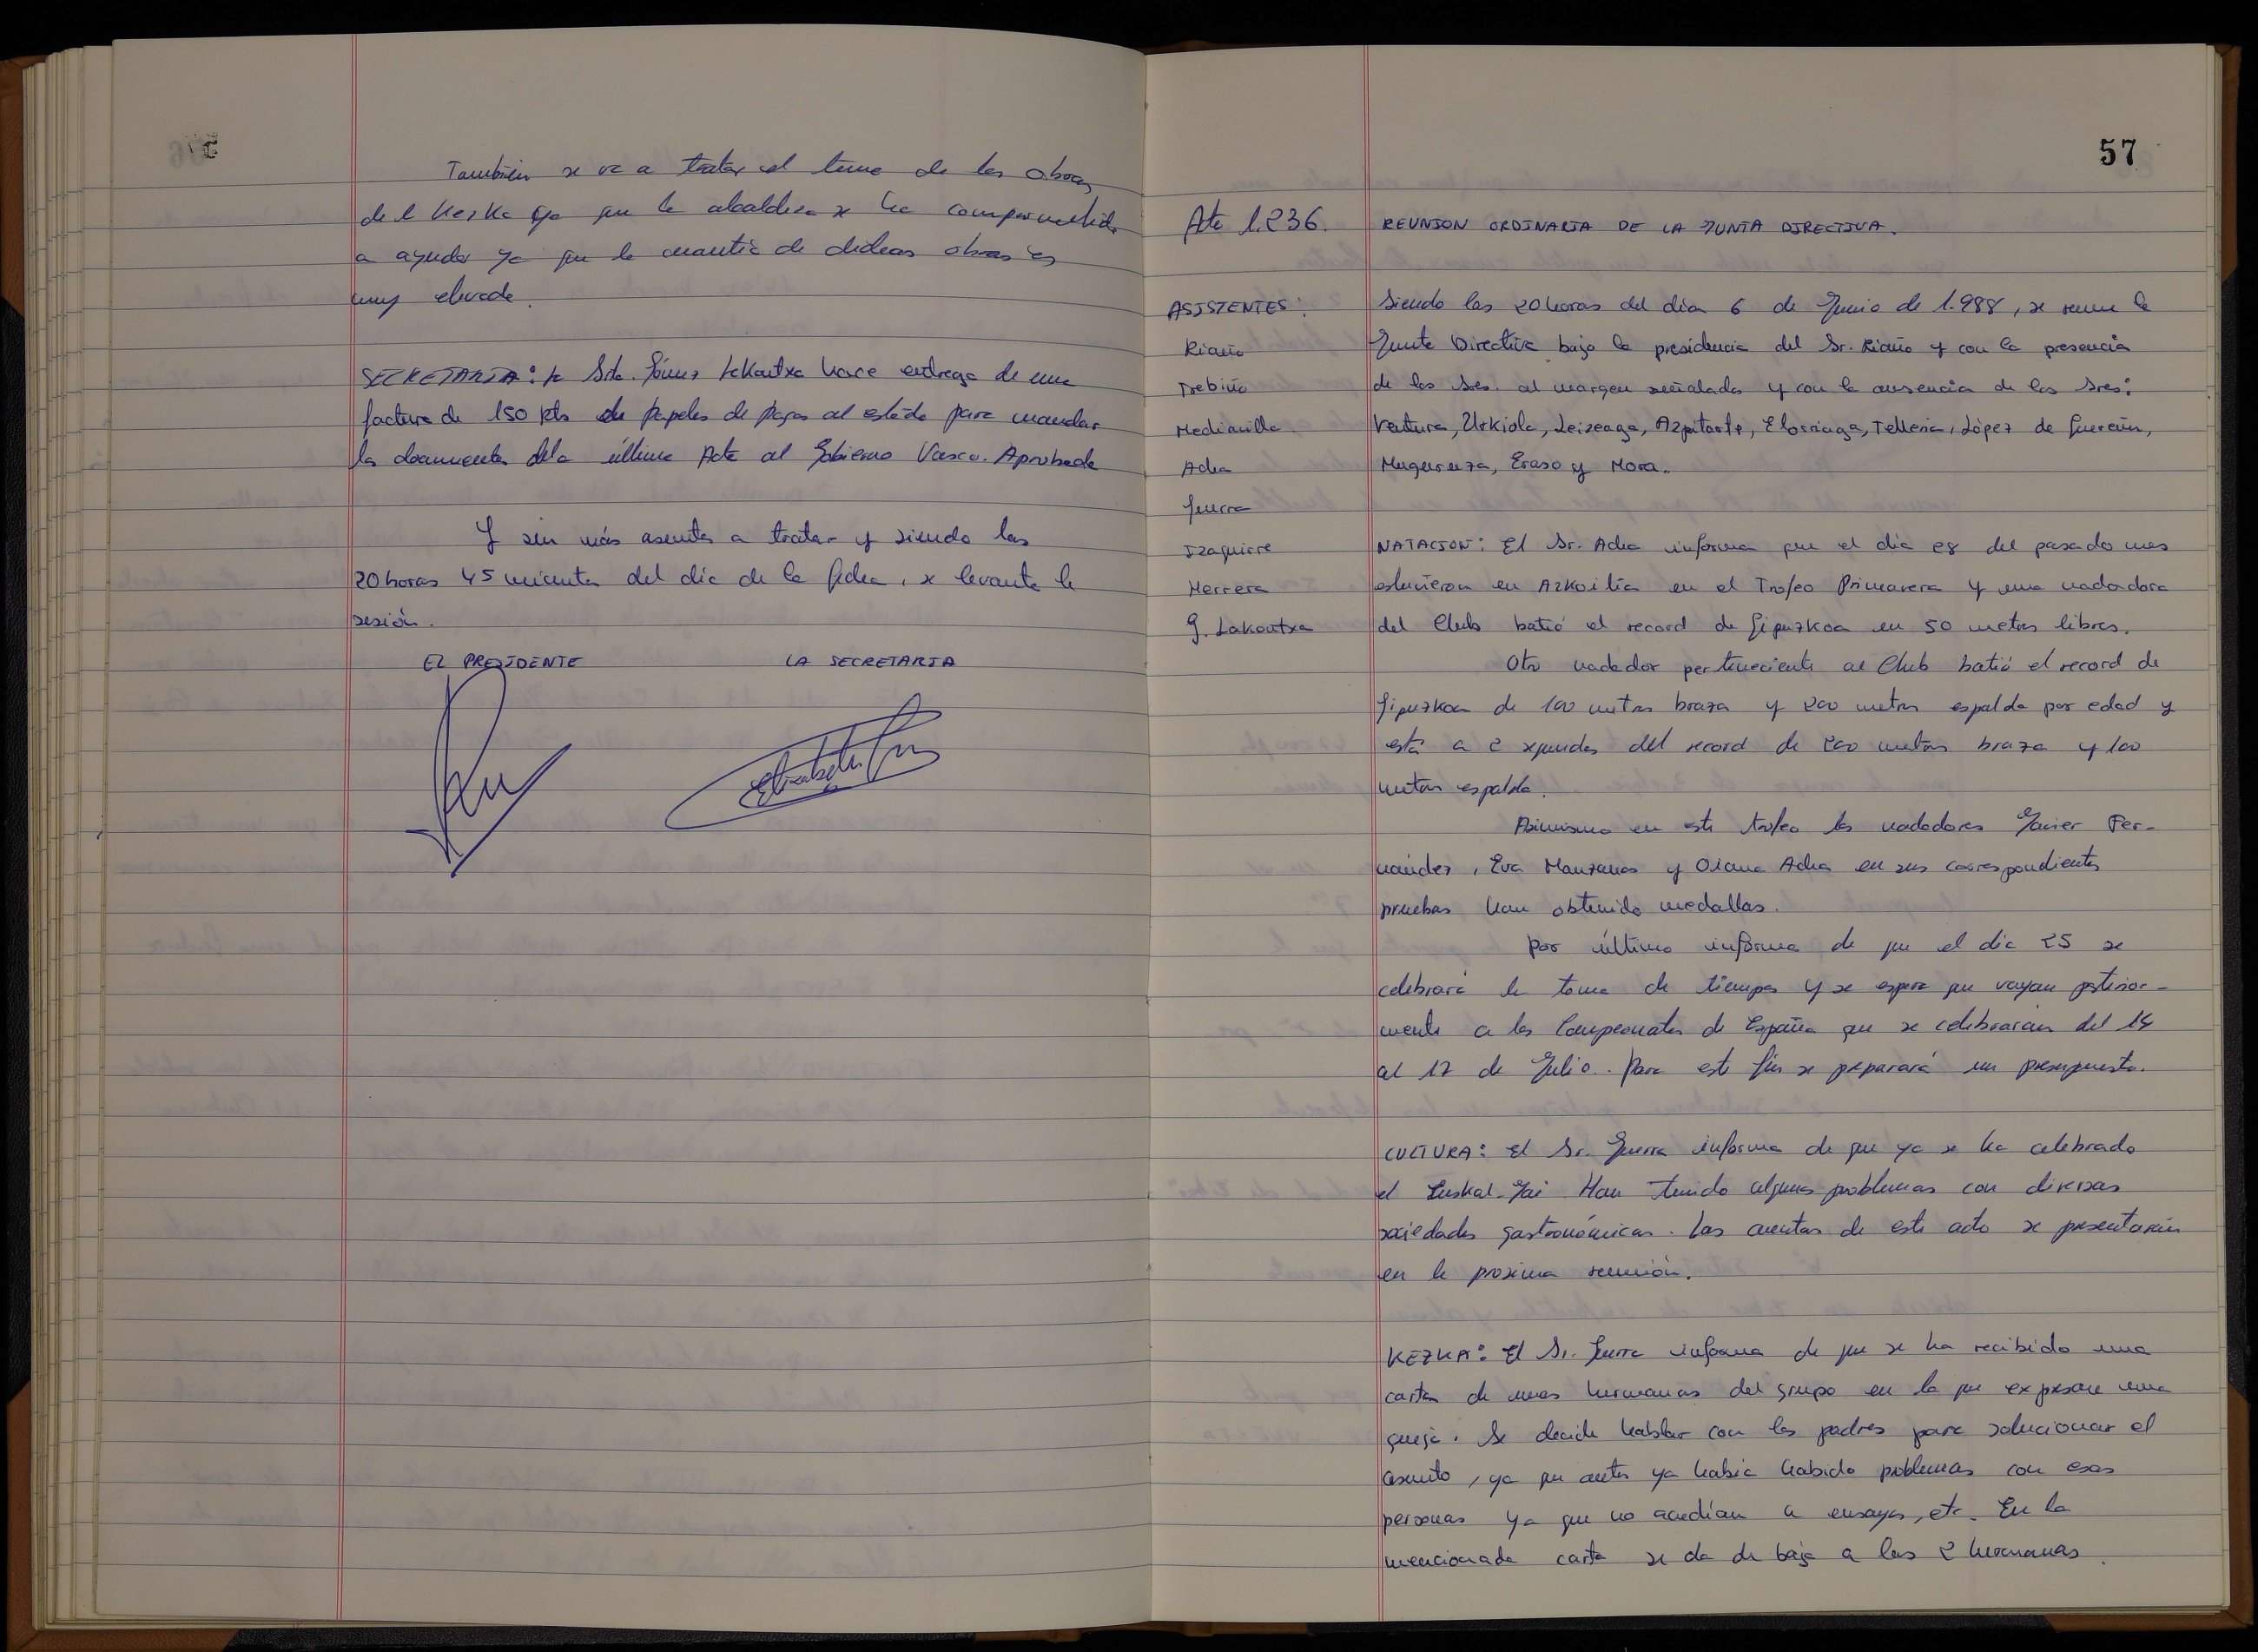 También se va a tratar el tema de las obras
del Kezka ya que la alcaldesa se ha comprometido
a ayudar ya que la cuantía de dichas obras es
muy elevada.
SECRETARIA: la Srta. Gómez Lakautxa hace entrega de una
factura de 150 pts de papeles de pagos al estado para mandar
los documentos de la última Acta al Gobierno Vasco. Aprobada
Y sin más asuntos a tratar y siendo las
20 horas 45 minutos del día de la fecha, se levanta la
sesión.
EL PRESIDENTE LA SECRETARIA
57
Acta 1.236. REUNION ORDINARIA DE LA JUNTA DIRECTIVA.
ASISTENTES:
Riaño
Trebiño
Medianilla
Adha
Guerra
Izaguirre
Herrera
G. Lakautxa
Siendo las 20 horas del día 6 de Junio de 1.988, se reune la
Junta Directiva bajo la presidencia del Sr. Riaño y con la presencia
de los Sres. al margen señalados y con la ausencia de los Sres:
Ventura, Urkiola, Leizeaga, Azpitarte, Elorriaga, Telleria, López de Guereñu,
Muguruza, Eraso y Mora.
NATACION: El Sr. Adha informa que el día 28 del pasado mes
estuvieron en Azkoitia en el Trofeo Primavera y una nadadora
del Club batió el record de Gipuzkoa en 50 metros libres.
Otro nadador perteneciente al Club batió el record de
Gipuzkoa de 100 metros braza y 200 metros espalda por edad y
está a 2 segundos del record de 200 metros braza y 100
metros espalda.
Asimismo en este trofeo los nadadores Javier Fer-
nández, Eva Manzanos y Oiana Adha en sus correspondientes
pruebas han obtenido medallas.
Por último informa de que el día 25 se
celebrará la toma de tiempos y se espera que vayan posterior-
mente a los Campeonatos de España que se celebrarán del 14
al 17 de Julio. Para este fin se preparará un presupuesto.
CULTURA: El Sr. Guerra informa de que ya se ha celebrado
el Euskal-Jai. Han tenido algunos problemas con diversas
sociedades gastronómicas. Las cuentas de este acto se presentarán
en la proxima reunión.
KEZKA: El Sr. Guerra informa de que se ha recibido una
carta de unas hermanas del grupo en la que expresan una
queja. Se decide hablar con los padres para solucionar el
asunto, ya que antes ya había habido problemas con esas
personas ya que no acudían a ensayos, etc. En la
mencionada carta se da de baja a las 2 hermanas.